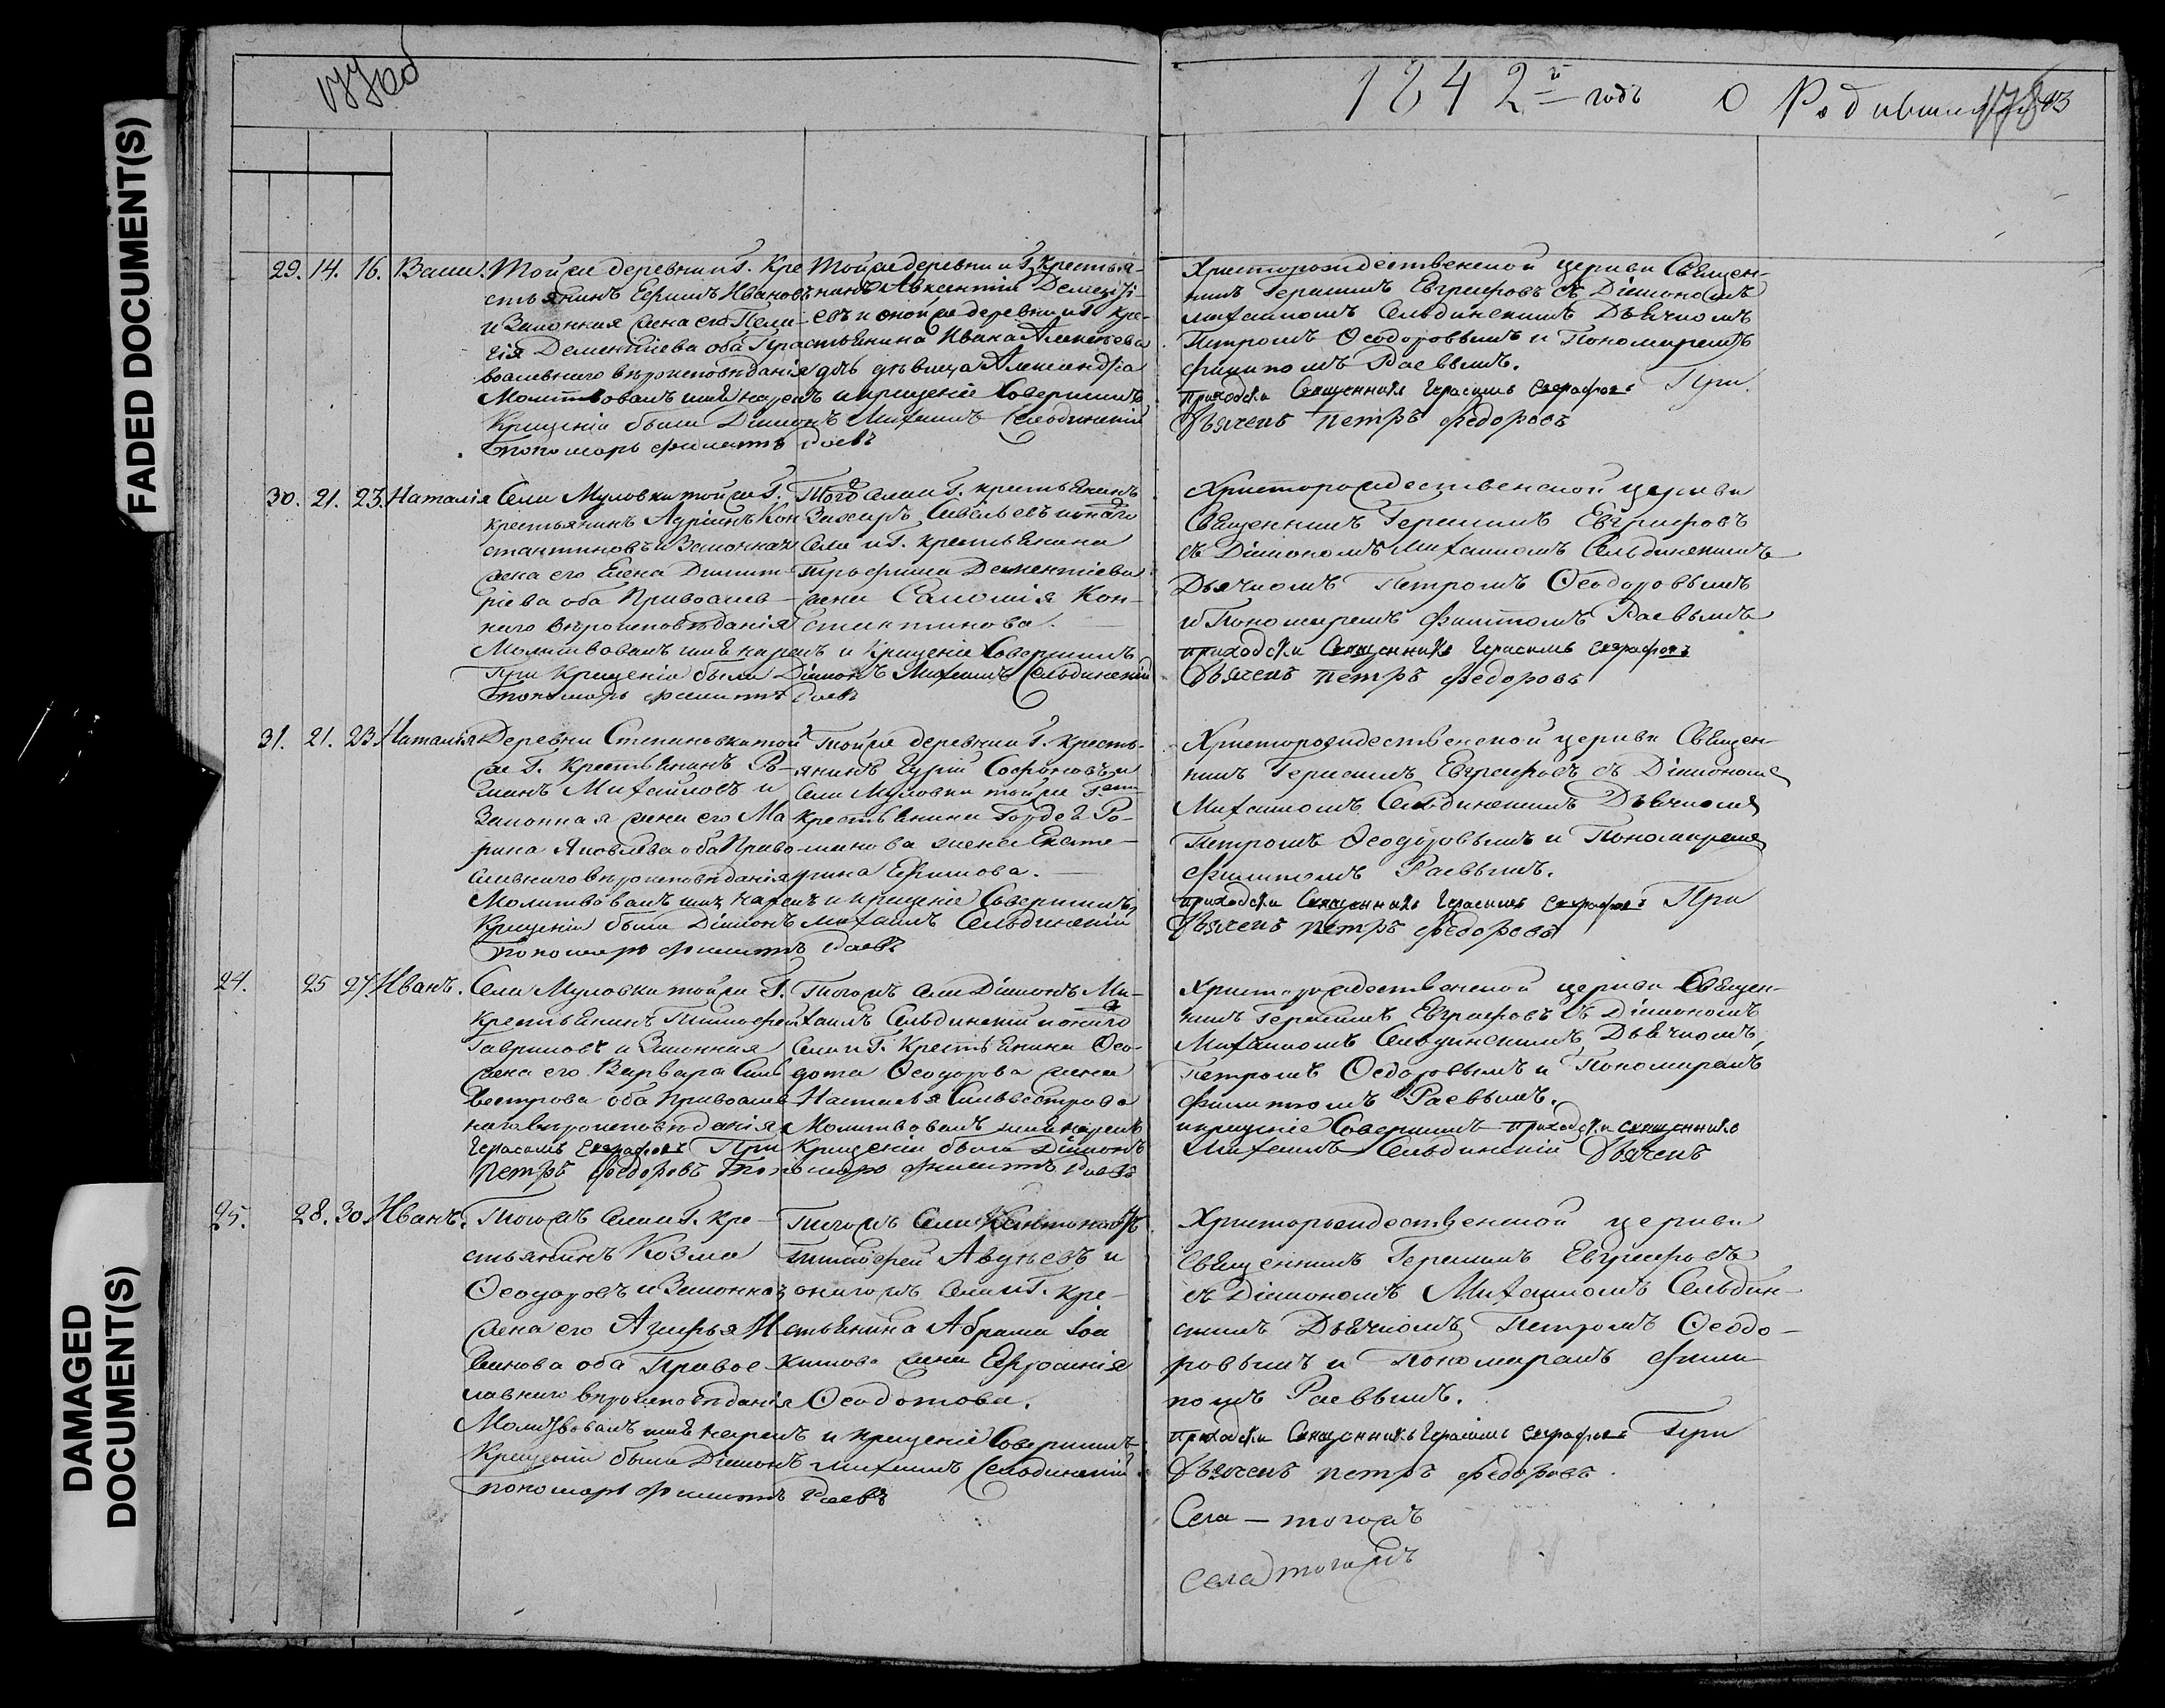 FADED DOCUMENT(S)
DAMAGED
DOCUMENT(S)
1842й годъ О Родившихся
29. 14. 16. Тойже деревни и Г. Кре
стьянинъ Ефимъ Ивановъ
и Законная жена его Пела-
гія Дементіева оба Право
славнаго вѣроисповѣданія
Тойже деревни и Г. Крестья-
нинъ Авксентій
евъ и оной же деревни и Г. кре-
стьянина Ивана Алексѣева
дочь дѣвица Александра
Молитвовалъ имя нарекъ и крещеніе Совершилъ
Крещеніи были Діаконъ Михаилъ Сельдинскій
пономарь Филиппъ Раевъ
Христорождественской церкви Священ-
никъ Герасимъ Евграфовъ съ Діакономъ
Михаиломъ Сельдинскимъ Дьячкомъ
Петромъ Ѳеодоровымъ и Пономаремъ
Филипомъ Раевымъ.
приходски Священникъ Герасимъ Евграфовъ При
Дьячекъ петръ федоровъ
30. 21. 23. Наталія Села Муловки тойже Г.
крестьянинъ Адріанъ Кон
стантиновъ и Законная
жена его Елена Димит-
ріева оба Православ-
наго вѣроисповѣданія
Того села и Г. крестьянинъ
Захаръ Савельевъ и онаго
Села и Г. крестьянина
Трофима Дементіева
жена Саломія Кон-
стантинова.
Молитвовалъ имя нарекъ и Крещеніе Совершилъ
При Крещеніи были Діаконъ Михаилъ Сельдинскій
пономарь филиппъ Раевъ
Христорождественской церкви
Священникъ Герасимъ Евграфовъ
съ Діакономъ Михаиломъ Сельдинскимъ
Дьячкомъ Петромъ Ѳеодоровымъ
и Пономаремъ Филипомъ Раевымъ
приходски Священникъ Герасимъ Евграфовъ
Дьячекъ петръ федоровъ
31. 21. 23. Наталія Деревни Степановки той
же Г. Крестьянинъ Ро-
манъ Михайловъ и
Законная жена его Ма
рина Яковлева оба Право
славнаго вѣроисповѣданія
Тойже деревни и Г. Кресть-
янинъ Гурій Софоновъ и
Села Муловки тойже Г.
Крестьянина Гордея Ро-
манова жена Екате-
рина Ефимова.
Молитвовалъ имя нарекъ и крещеніе Совершилъ
Крещеніи были Діаконъ Михаилъ Сельдинскій
пономарь филиппъ Раевъ
Христорождественской церкви Священ-
никъ Герасимъ Евграфовъ съ Діакономъ
Михаиломъ Сельдинскимъ Дьячкомъ
Петромъ Ѳеодоровымъ и Пономаремъ
Филиппомъ Раевымъ.
приходски Священникъ Герасимъ Евграфовъ При
Дьячекъ петръ федоровъ
24. 25 27. Иванъ. Села Муловки тойже Г.
Крестьянинъ Тимофей
Гавриловъ и Законная
жена его Варвара Силь
вестрова оба Православ
наго вѣроисповѣданія
Тогожъ села Діаконъ Ми-
хаилъ Сельдинскій и онаго
Села и Г. Крестьянина Ѳео-
дота Ѳеодорова жена
Наталья Сильвестрова
Молитвовалъ имя нарекъ
Герасимъ Евграфовъ При Крещеніи были Діаконъ
Петръ федоровъ пономарь филиппъ Раевъ
Христорождественской церкви Священ-
никъ Герасимъ Евграфовъ съ Діакономъ
Михаиломъ Сельдинскимъ Дьячкомъ
Петромъ Ѳедоровымъ и Пономаремъ
Филиппомъ Раевымъ.
и крещеніе Совершилъ приходски священникъ
Михаилъ Сельдинскій Дьячекъ
25. 28. 30. Иванъ. Тогожъ села и Г. Кре-
стьянинъ Козма
Ѳеодоровъ и Законная
жена его Агафья
оба Правос-
лавнаго вѣроисповѣданія
Тогожъ Села
Тимофей и
оногожъ Села и Г. Кре-
стьянина Абрама Іоа
кимова жена Евфросинія
Ѳеодотова.
Молитвовалъ имя нарекъ и крещеніе Совершилъ
Крещеніи были Діаконъ Михаилъ Сельдинскій
пономарь филиппъ Раевъ
Христорождественской церкви
Священникъ Герасимъ Евграфовъ
съ Діакономъ Михаиломъ Сельдин-
скимъ Дьячкомъ Петромъ Ѳеодо-
ровымъ и Пономаремъ Фили-
помъ Раевымъ.
приходски Священникъ Герасимъ Евграфовъ При
Дьячекъ петръ федоровъ.
Села — тогожъ
Села тогожъ